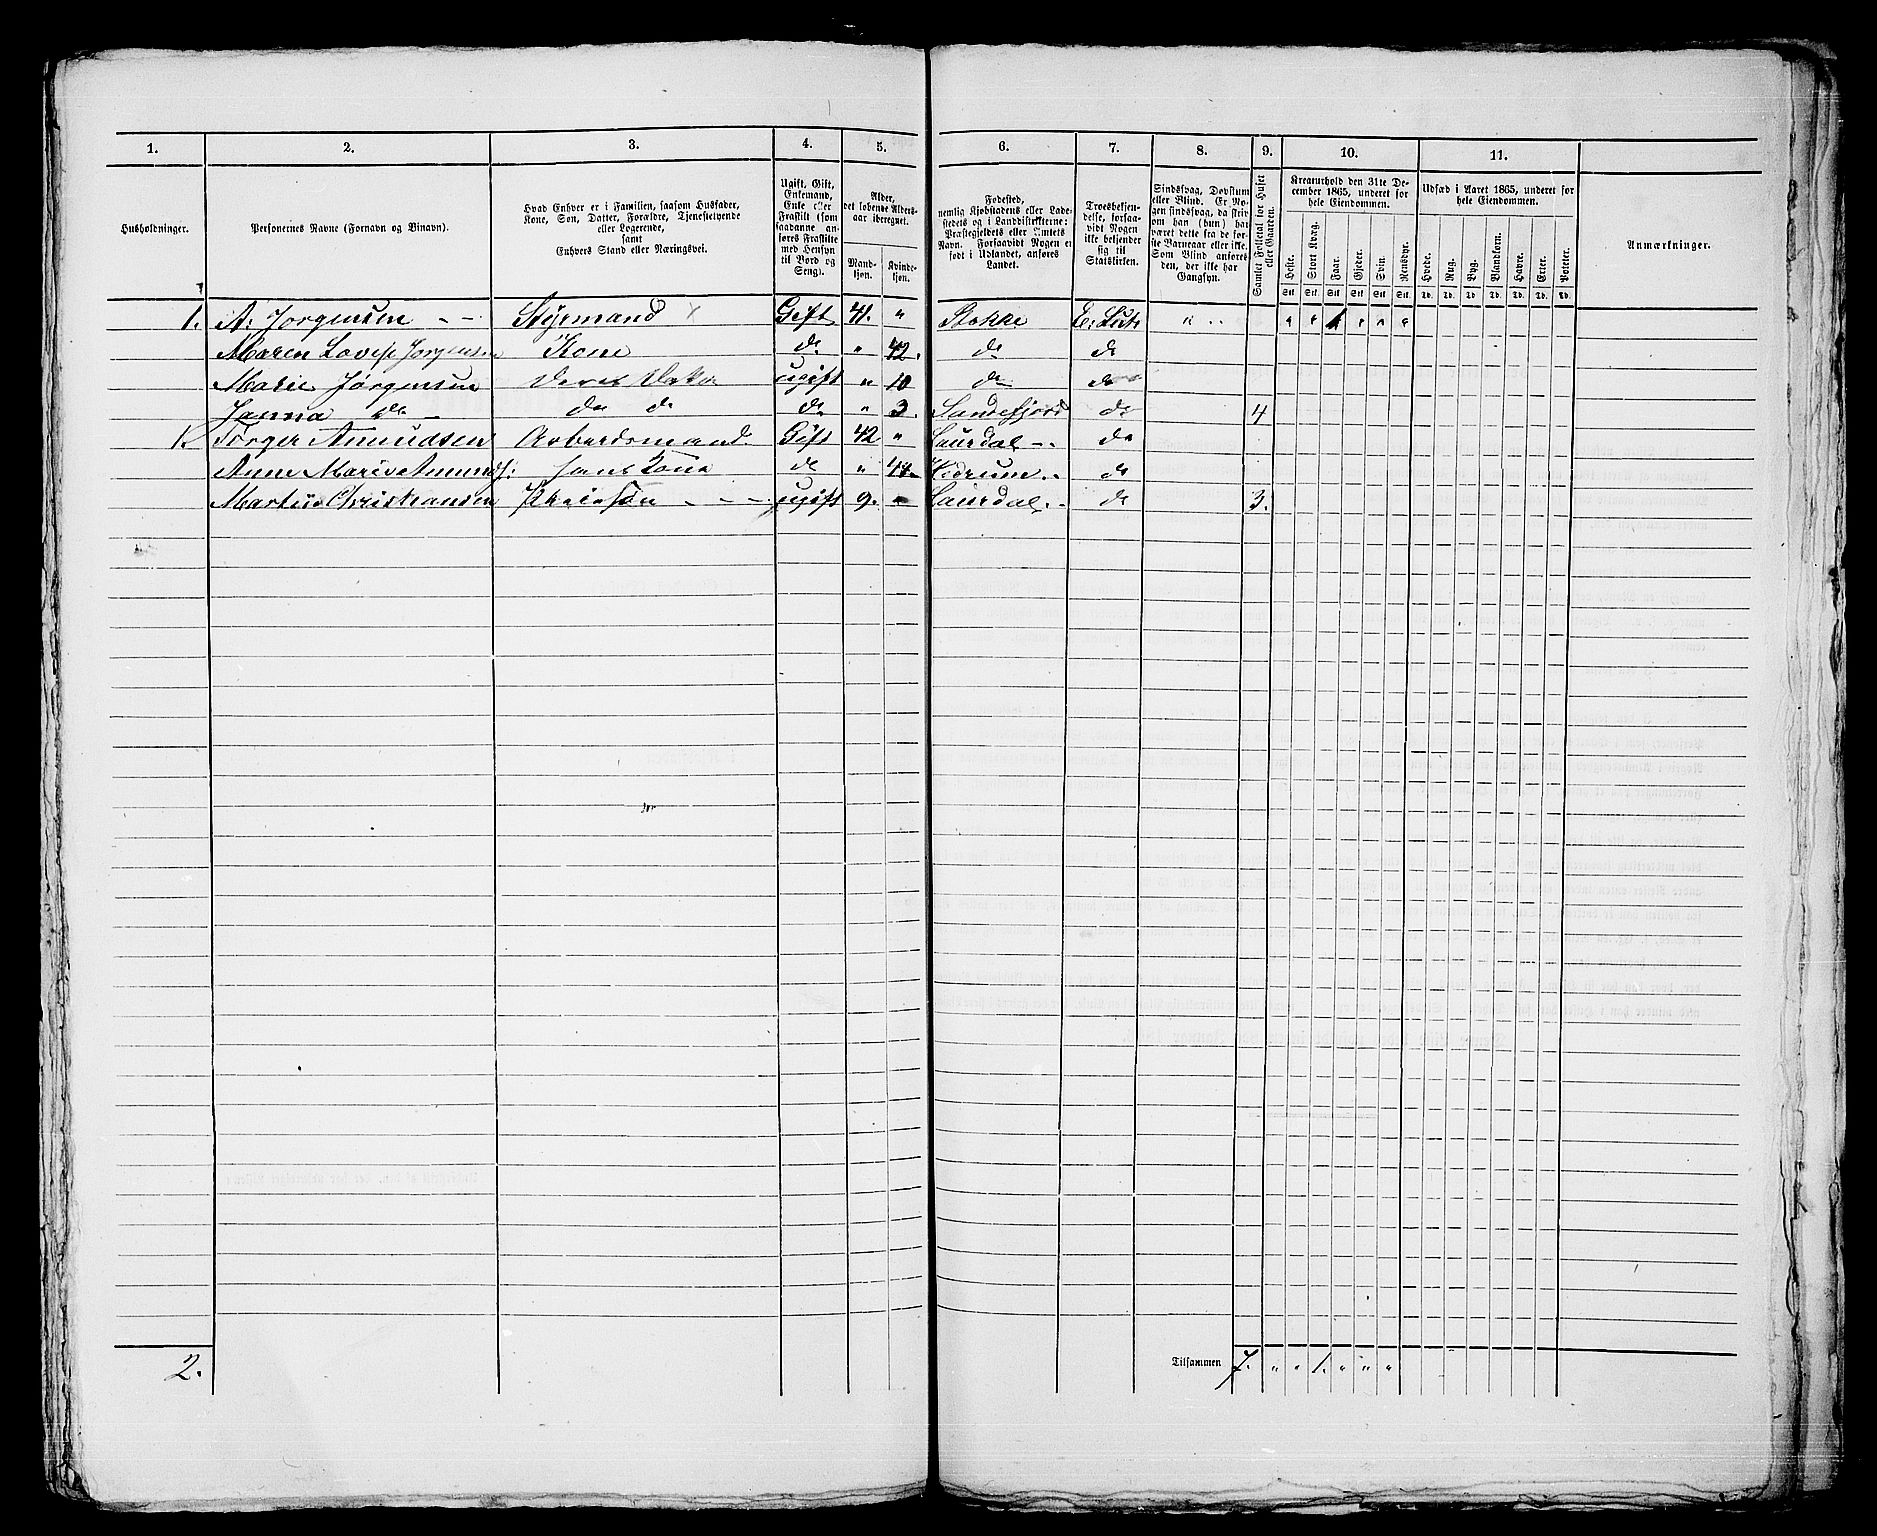 1. 2. 3. 4. 5. 6. 7. 8. 9. 10. 11.
Husholdninger.
Personernes Navne (Fornavn og Binavn).
Hvad Enhver er i Familien, saasom Husfader,
Kone, Søn, Datter, Forældre, Tjenestetyende
eller Logerende,
samt
Enhvers Stand eller Næringsvei.
Ugift, Gift,
Enkemand,
Enke eller
Fraskilt (som
saadanne an-
føres Fraskilte
med Hensyn
til Bord og
Seng).
Alder,
det løbende Alders-
aar iberegnet.
Mand-
kjøn.
Kvinde-
kjøn.
Fødested,
nemlig Kjøbstadens eller Lade-
stedets og i Landdistrikterne:
Præstegjeldets eller Amtets
Navn. Forsaavidt Nogen er
født i Udlandet, anføres
Landet.
Troesbekjen-
delse, forsaa-
vidt Nogen
ikke bekjender
sig til
Statskirken.
Sindssvag, Døvstum
eller Blind. Er No-
gen sindssvag, da skriv
om han (hun) har
været dette fra de før-
ste Barneaar eller ikke.
Som Blind anføres
den, der ikke har
Gangsyn.
Samlet Folketal for Huset
eller Gaarden.
Kreaturhold den 31te De-
cember 1865, underet for
hele Eiendommen.
Heste. Stort Kvæg. Faar. Gjeder. Svin. Rensdyr.
Stk. Stk. Stk. Stk. Stk. Stk.
Udsæd i Aaret 1865, underet for
hele Eiendommen.
Hvede. Rug. Byg. Blandkorn. Havre. Erter. Poteter.
Td. Td. Td. Td. Td. Td. Td.
Anmærkninger.
1. A: Jörgensen - - Styrmand x Gift 41. " Stokke E: Luth " " " " 1 " " "
Maren Lovise Jörgensen Kone do " 42. do do
Marie Jörgensen Deres ugift " 10 do do
Janna do - do do do " 3. Sandefjord do 4
1. Torger Amundsen Arbeidsmand Gift 42 " Laurdal - - do
Anne Marie Amunds: hans Kone do " Hedrum - - do
Martin Christiansen Pleiesøn - - - ugift 9. " Laurdal. - do 3.
2. Tilsammen 7. " " 1. " " "